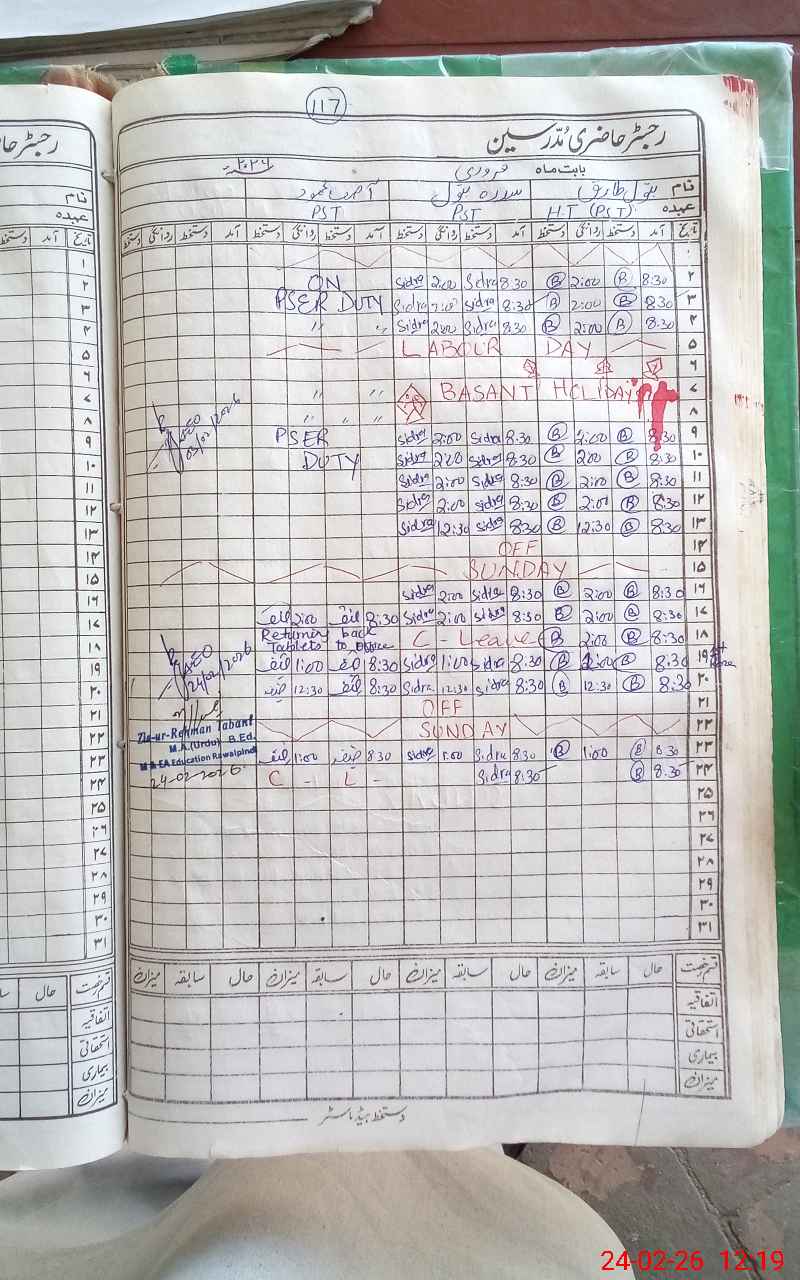 117
رجسٹر حاضری مُدرسین
بابت ماہ فروری ۲۰۲۶
نام بتول طارق سدرہ بتول آصف محمود
عہدہ H.T (PST) PST PST
تاریخ آمد دستخط روانگی دستخط آمد دستخط روانگی دستخط آمد دستخط روانگی دستخط آمد دستخط روانگی دستخط
۱
۲ 8:30 B 2:00 B 8:30 Sidra 2:00 Sidra ON
۳ 8:30 B 2:00 B 8:30 Sidra 2:00 Sidra PSER DUTY
۴ 8:30 B 2:00 B 8:30 Sidra 2:00 Sidra " "
۵ LABOUR DAY
۶
۷ BASANT HOLIDAY " "
۸ " " " "
۹ 8:30 B 2:00 B 8:30 Sidra 2:00 Sidra PSER
۱۰ 8:30 B 2:00 B 8:30 Sidra 2:00 Sidra DUTY
۱۱ 8:30 B 2:00 B 8:30 Sidra 2:00 Sidra
۱۲ 8:30 B 2:00 B 8:30 Sidra 2:00 Sidra
۱۳ 8:30 B 12:30 B 8:30 Sidra 12:30 Sidra
۱۴ OFF
۱۵ SUNDAY
۱۶ 8:30 B 2:00 B 8:30 Sidra 2:00 Sidra
۱۷ 8:30 B 2:00 B 8:30 Sidra 2:00 Sidra 8:30 2:00
۱۸ 8:30 B 2:00 B C - Leave Returning back Tablets to office
۱۹ 8:30 B 1:00 B 8:30 Sidra 1:00 Sidra 8:30 1:00
۲۰ 8:30 B 12:30 B 8:30 Sidra 12:30 Sidra 8:30 12:30
۲۱ OFF
۲۲ SUNDAY
۲۳ 8:30 B 1:00 B 8:30 Sidra 1:00 Sidra 8:30 1:00
۲۴ 8:30 B 8:30 Sidra C - L -
۲۵
۲۶
۲۷
۲۸
۲۹
۳۰
۳۱
AEO
05/02/2026
AEO
24/02/2026
Zia-ur-Rehman Tabani
M.A.(Urdu) B.Ed.
M & EA Education Rawalpindi
24-02-2026
قسم رخصت حال سابقہ میزان حال سابقہ میزان حال سابقہ میزان حال سابقہ میزان
اتفاقیہ
استحقاقی
بیماری
میزان
دستخط ہیڈ ماسٹر
24-02-26 12:19